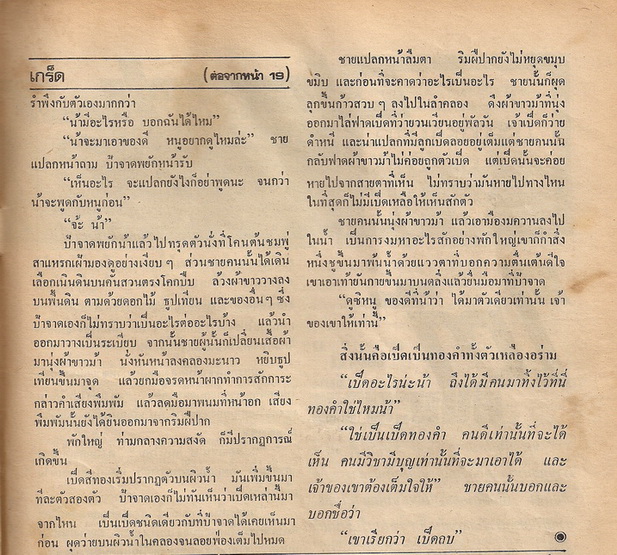 เกร็ด (ต่อจากหน้า 19)
รำพึงกับตัวเองมากกว่า
“น้ามีอะไรหรือ บอกฉันได้ไหม”
“น้าจะมาเอาของดี หนูอยากดูไหมล่ะ” ชาย
แปลกหน้าถาม ป้าจาดพยักหน้ารับ
“เห็นอะไร จะแปลกยังไงก็อย่าพูดนะ จนกว่า
น้าจะพูดกับหนูก่อน”
“จ้ะ น้า”
ป้าจาดพยักน้าแล้วไปทรุดตัวนั่งที่โคนต้นชมพู่
สาแหรกเฝ้ามองดูอย่างเงียบ ๆ ส่วนชายคนนั้นได้เดิน
เลือกเนินดินบนคันสวนตรงโคกปีบ ล้วงผ้าขาววางลง
บนพื้นดิน ตามด้วยดอกไม้ ธูปเทียน และของอื่น ๆ ซึ่ง
ป้าจาดเองก็ไม่ทราบว่าเป็นอะไรต่ออะไรบ้าง แล้วนำ
ออกมาวางเป็นระเบียบ จากนั้นชายผู้นั้นก็เปลี่ยนเสื้อผ้า
มานุ่งผ้าขาวม้า นั่งหันหน้าลงคลองมะนาว หยิบธูป
เทียนขึ้นมาจุด แล้วยกมือจรดหน้าผากทำการสักการะ
กล่าวคำเสียงพึมพัม แล้วลดมือมาพนมที่หน้าอก เสียง
พึมพัมนั้นยังได้ยินออกมาจากริมฝีปาก
พักใหญ่ ท่ามกลางความสงัด ก็มีปรากฏการณ์
เกิดขึ้น
เป็ดสีทองเริ่มปรากฏตัวบนผิวน้ำ มันเพิ่มขึ้นมา
ทีละตัวสองตัว ป้าจาดเองก็ไม่ทันเห็นว่าเป็ดเหล่านั้นมา
จากไหน เป็นเป็ดชนิดเดียวกับที่ป้าจาดได้เคยเห็นมา
ก่อน ผุดว่ายบนผิวน้ำในคลองจนลอยฟ่องเต็มไปหมด
ชายแปลกหน้าลืมตา ริมฝีปากยังไม่หยุดขมุบ
ขมิบ และก่อนที่จะคาดว่าอะไรเป็นอะไร ชายนั้นก็ผุด
ลุกขึ้นก้าวสวบ ๆ ลงไปในลำคลอง ดึงผ้าขาวม้าที่นุ่ง
ออกมาไล่ฟาดเป็ดที่ว่ายวนเวียนอยู่พัลวัน เจ้าเป็ดก็ว่าย
ดำหนี และน่าแปลกที่มีลูกเป็ดลอยอยู่เต็มแต่ชายคนนั้น
กลับฟาดผ้าขาวม้าไม่ค่อยถูกตัวเป็ด แต่เป็ดนั้นจะค่อย
หายไปจากสายตาที่เห็น ไม่ทราบว่ามันหายไปทางไหน
ในที่สุดก็ไม่มีเป็ดเหลือให้เห็นสักตัว
ชายคนนั้นนุ่งผ้าขาวม้า แล้วเอามือมควานลงไป
ในน้ำ เป็นการงมหาอะไรสักอย่างพักใหญ่เขาก็กำสิ่ง
หนึ่งชูขึ้นมาพ้นน้ำด้วยแววตาที่บอกความตื่นเต้นดีใจ
เขาเอาเท้ายันกายขึ้นมาบนตลิ่งแล้วยื่นมือมาที่ป้าจาด
“ดูซิหนู ของดีที่น้าว่า ได้มาตัวเดียวเท่านั้น เจ้า
ของเขาให้เท่านี้”
สิ่งนั้นคือเป็ดเป็นทองคำทั้งตัวเหลืองอร่าม
“เป็ดอะไรน่ะน้า ถึงได้มีคนมาทิ้งไว้ที่นี่
ทองคำใช่ไหมน้า”
“ใช่เป็นเป็ดทองคำ คนดีเท่านั้นที่จะได้
เห็น คนมีวิชามีบุญเท่านั้นที่จะมาเอาได้ และ
เจ้าของเขาต้องเต็มใจให้” ชายคนนั้นบอกและ
บอกชื่อว่า
“เขาเรียกว่า เป็ดถบ”